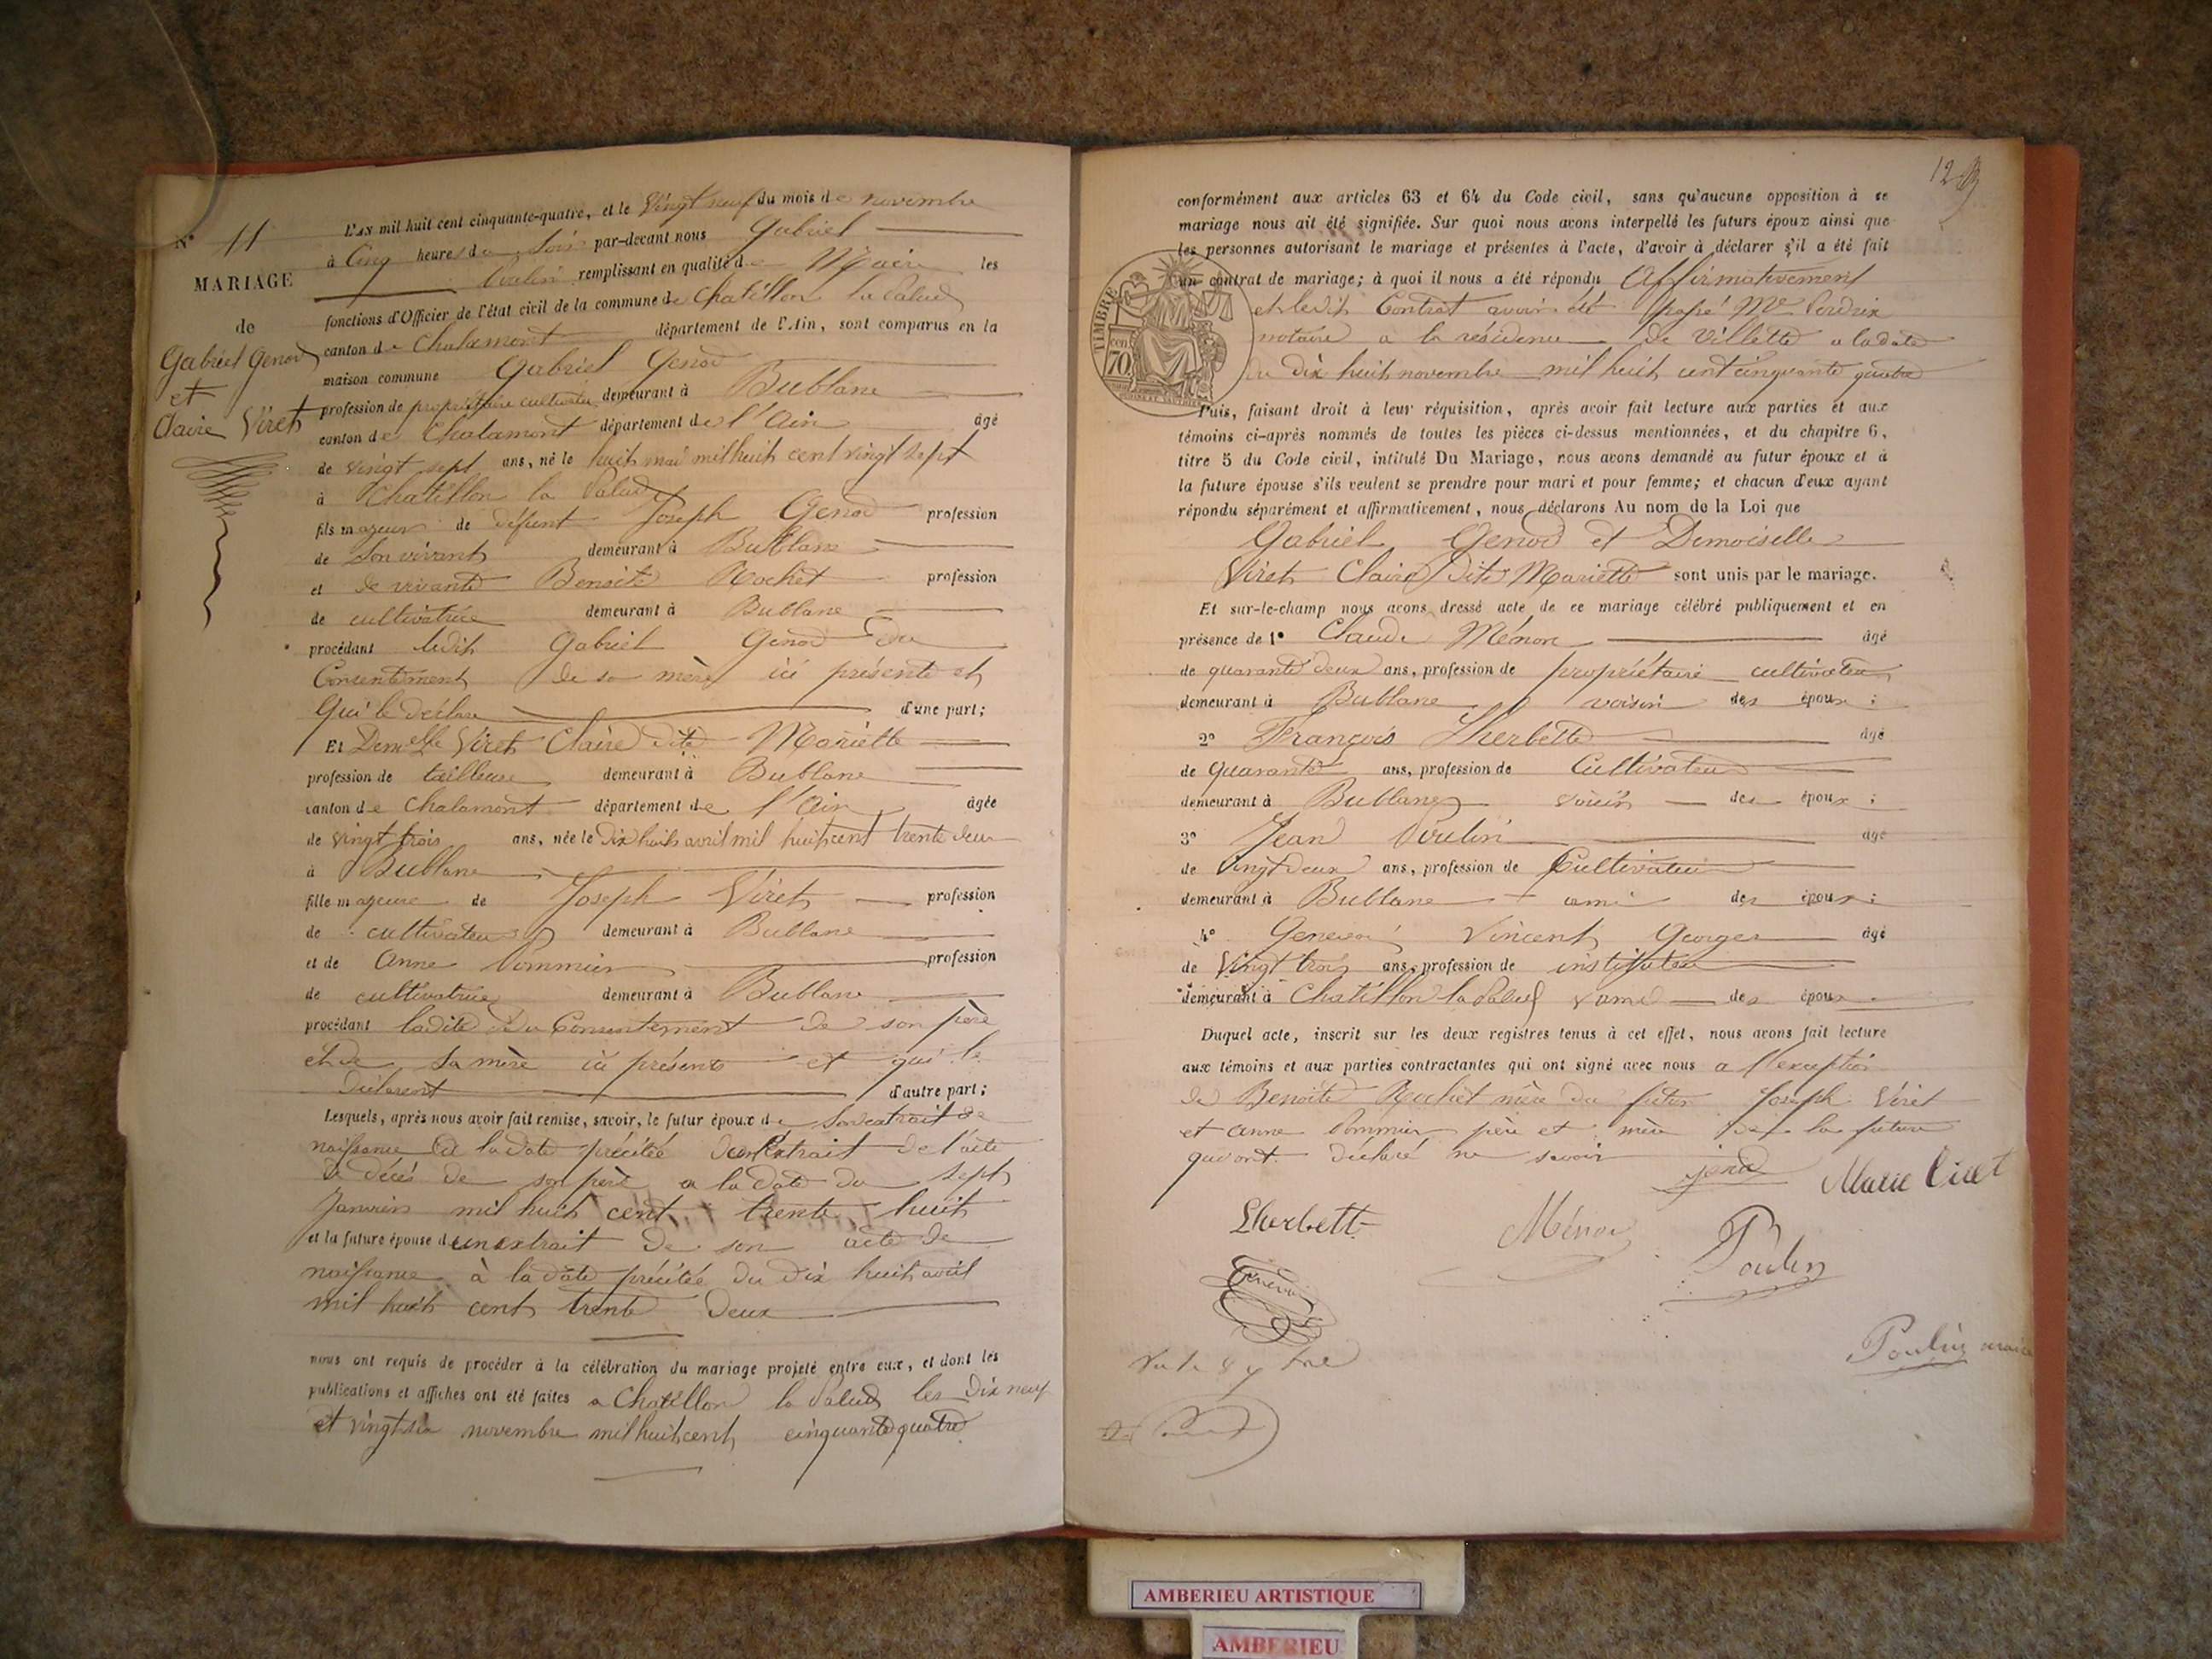 N° 11
MARIAGE
de
Gabriel Genod
et
Claire Viret
L'an mil huit cent cinquante-quatre, et le Vingt neuf du mois de novembre
à Cinq heures du Soir par-devant nous Gabriel
Poulin remplissant en qualité de Maire les
fonctions d'Officier de l'état civil de la commune de Chatillon la Palud
canton de Chalamont département de l'Ain, sont comparus en la
maison commune Gabriel Genod
profession de propriétaire cultivateur demeurant à Bublane
canton de Chalamont département de l'Ain âgé
de vingt sept ans, né le huit mai mil huit cent vingt sept
à Chatillon la Palud
fils majeur de défunt Joseph Genod profession
de Son vivant demeurant à Bublane
et de vivante Benoite Rochet profession
de cultivatrice demeurant à Bublane
procédant ledit Gabriel Genod du
Consentement de sa mère ici présente et
Qui le déclare d'une part;
Et Demelle Viret Claire dite Mariette
profession de tailleuse demeurant à Bublane
canton de Chalamont département de l'Ain âgée
de vingt trois ans, née le Dix huit avril mil huit cent trente deux
à Bublane
fille majeure de Joseph Viret profession
de cultivateur demeurant à Bublane
et de Anne Pommier profession
de cultivatrice demeurant à Bublane
procédant ladite du Consentement de son père
et de sa mère ici présents et qui le
déclarent d'autre part;
Lesquels, après nous avoir fait remise, savoir, le futur époux de Son extrait de
naissance à la date précitée de l'extrait de l'acte
de décès de son père a la date du sept
Janvier mil huit cent trente huit
et la future épouse d'un extrait de son acte de
naissance à la date précitée du dix huit avril
mil huit cent trente deux
nous ont requis de procéder à la célébration du mariage projeté entre eux, et dont les
publications et affiches ont été faites a Chatillon la Palud les Dix neuf
et vingt six novembre mil huit cent cinquante quatre
12
conformément aux articles 63 et 64 du Code civil, sans qu'aucune opposition à ce
mariage nous ait été signifiée. Sur quoi nous avons interpellé les futurs époux ainsi que
les personnes autorisant le mariage et présentes à l'acte, d'avoir à déclarer s'il a été fait
un contrat de mariage; à quoi il nous a été répondu Affirmativement
et ledit Contrat avoir été passé Me Perdrix
notaire a la résidence de Villette a la date
du dix huit novembre mil huit cent cinquante quatre
TIMBRE
cen
70
Puis, faisant droit à leur réquisition, après avoir fait lecture aux parties et aux
témoins ci-après nommés de toutes les pièces ci-dessus mentionnées, et du chapitre 6,
titre 5 du Code civil, intitulé Du Mariage, nous avons demandé au futur époux et à
la future épouse s'ils veulent se prendre pour mari et pour femme; et chacun d'eux ayant
répondu séparément et affirmativement, nous déclarons Au nom de la Loi que
Gabriel Genod et Demoiselle
Viret Claire dite Mariette sont unis par le mariage.
Et sur-le-champ nous avons dressé acte de ce mariage célébré publiquement et en
présence de 1° Claude Ménon âgé
de quarante deux ans, profession de propriétaire cultivateur
demeurant à Bublane voisin des époux;
2° François Lherbette âgé
de Quarante ans, profession de Cultivateur
demeurant à Bublane voisin des époux;
3° Jean Poulin âgé
de Vingt deux ans, profession de Cultivateur
demeurant à Bublane ami des époux;
4° Vincent Georges âgé
de Vingt trois ans, profession de instituteur
demeurant à Chatillon la Palud des époux.
Duquel acte, inscrit sur les deux registres tenus à cet effet, nous avons fait lecture
aux témoins et aux parties contractantes qui ont signé avec nous a l'exception
de Benoite Rochet mère du futur Joseph Viret
et Anne Pommier père et mère de la future
qui ont déclaré ne savoir
jenod Marie Viret
Lherbette Ménon Poulin
Poulin maire
AMBERIEU ARTISTIQUE
AMBERIEU